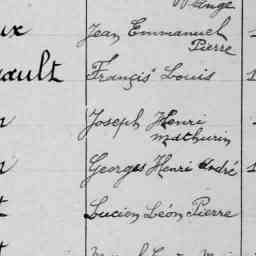 Ange
ux Jean Emmanuel
Pierre
ault Francis Louis
Joseph Henri
Mathurin
Georges Henri André
Lucien Léon Pierre